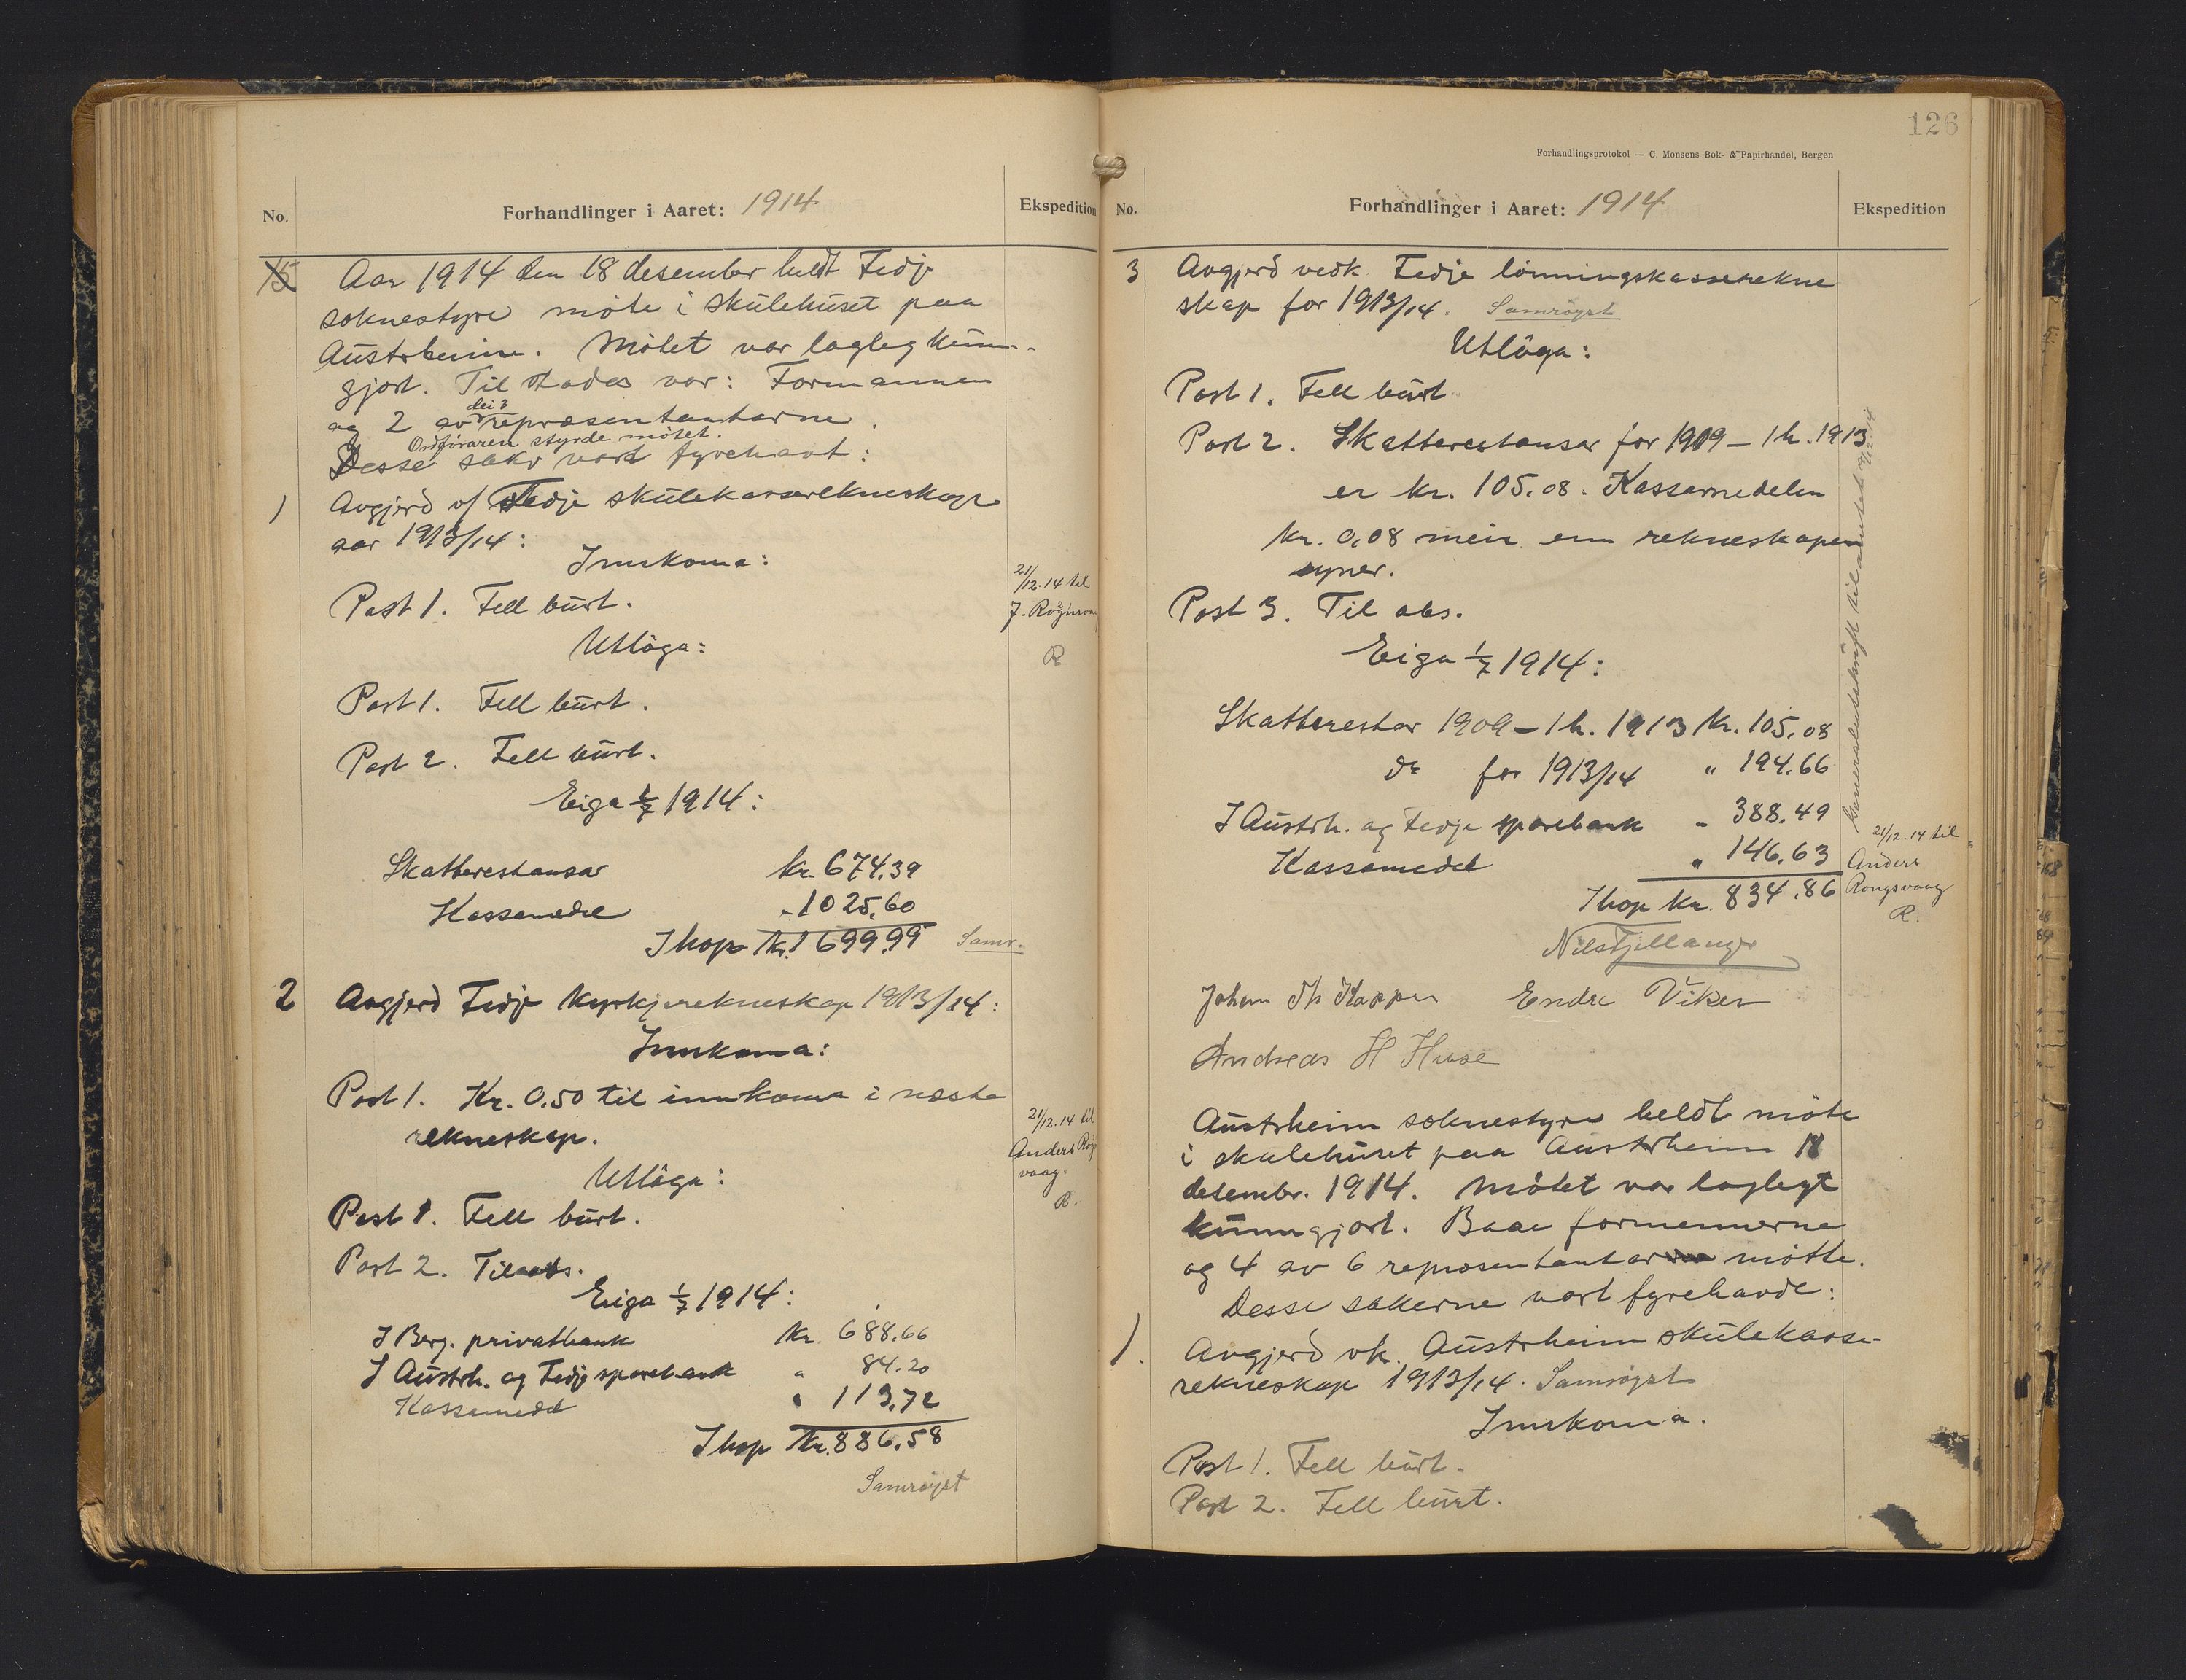 No.
Forhandlinger i Aaret: 1914
Ekspedition
15 Aar 1914 den 18 desember heldt Fedje
soknestyre møte i skulehuset paa
Austrheim. Møtet var lagleg kunn-
gjort. Til stades var: Formannen
og 2 av dei 3 repræsentantarne.
Ordføraren styrde møtet.
Desse saker vart fyrehavt:
1 Avgjerd v/ Fedje skulekasserekneskap
aar 1913/14:
Innkoma:
Post 1. Fell burt.
21/12.14 til
J. Rognsvaag
R
Utlôga:
Post 1. Fell burt.
Post 2. Fell burt.
Eiga 1/7 1914:
Skatterestansar kr. 674,39
Kassamedel " 1025,60
Ihop kr. 1699,99 Samr.
2 Avgjerd Fedje kyrkjerekneskap 1913/14:
Innkoma:
Post 1. Kr. 0.50 til innkoma i næste
rekneskap.
21/12.14 til
Anders Rongs
vaag.
R.
Utlôga:
Post 1. Fell burt.
Post 2. Til abs.
Eiga 1/7 1914:
I Berg. privatbank kr. 688.66
I Austrh. og Fedje sparebank " 84.20
Kassamedel " 113,72
Ihop kr. 886.58
Samrøyst
126
Forhandlingsprotokol — C. Monsens Bok- & Papirhandel, Bergen
No.
Forhandlinger i Aaret: 1914
Ekspedition
3 Avgjerd vedk. Fedje lønningskasserekne
skap for 1913/14. Samrøyst
Utlôga:
Post 1. Fell burt.
Post 2. Skatterestansar for 1909 – 1 h. 1913
er kr. 105.08. Kassamedelen
kr. 0,08 meir enn rekneskapen
syner.
Post 3. Til abs.
Eiga 1/7 1914:
Skatterestar 1909 – 1 h. 1913 kr. 105,08
do for 1913/14 " 194.66
I Austrh. og Fedje sparebank " 388.49
Kassamedel " 146,63
Ihop kr. 834.86
Generalutskrift til amtet 21/12.14
21/12.14 til
Anders
Rongsvaag
R.
Nils Fjellanger
Johan Th Kopper Endre Viken
Andreas H Huse
Austrheim soknestyre heldt møte
i skulehuset paa Austrheim 18
desembr. 1914. Møtet var laglegt
kunngjort. Baae formennerne
og 4 av 6 representantar møtte.
Desse sakerne vart fyrehavde:
1. Avgjerd vk. Austrheim skulekasse-
rekneskap 1913/14. Samrøyst
Innkoma.
Post 1. Fell burt.
Post 2. Fell burt.